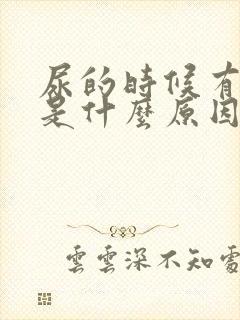 尿的時候有
是什麼原因
雲雲深不知處